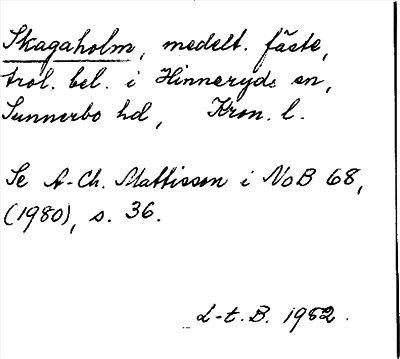 Skagaholm, medelt. fäste,
trol. bel. i Hinneryds sn,
Sunnerbo hd, Kron. l.
Se A-Ch. Mattisson i NoB 68,
(1980), s. 36.
L-t. B. 1982.